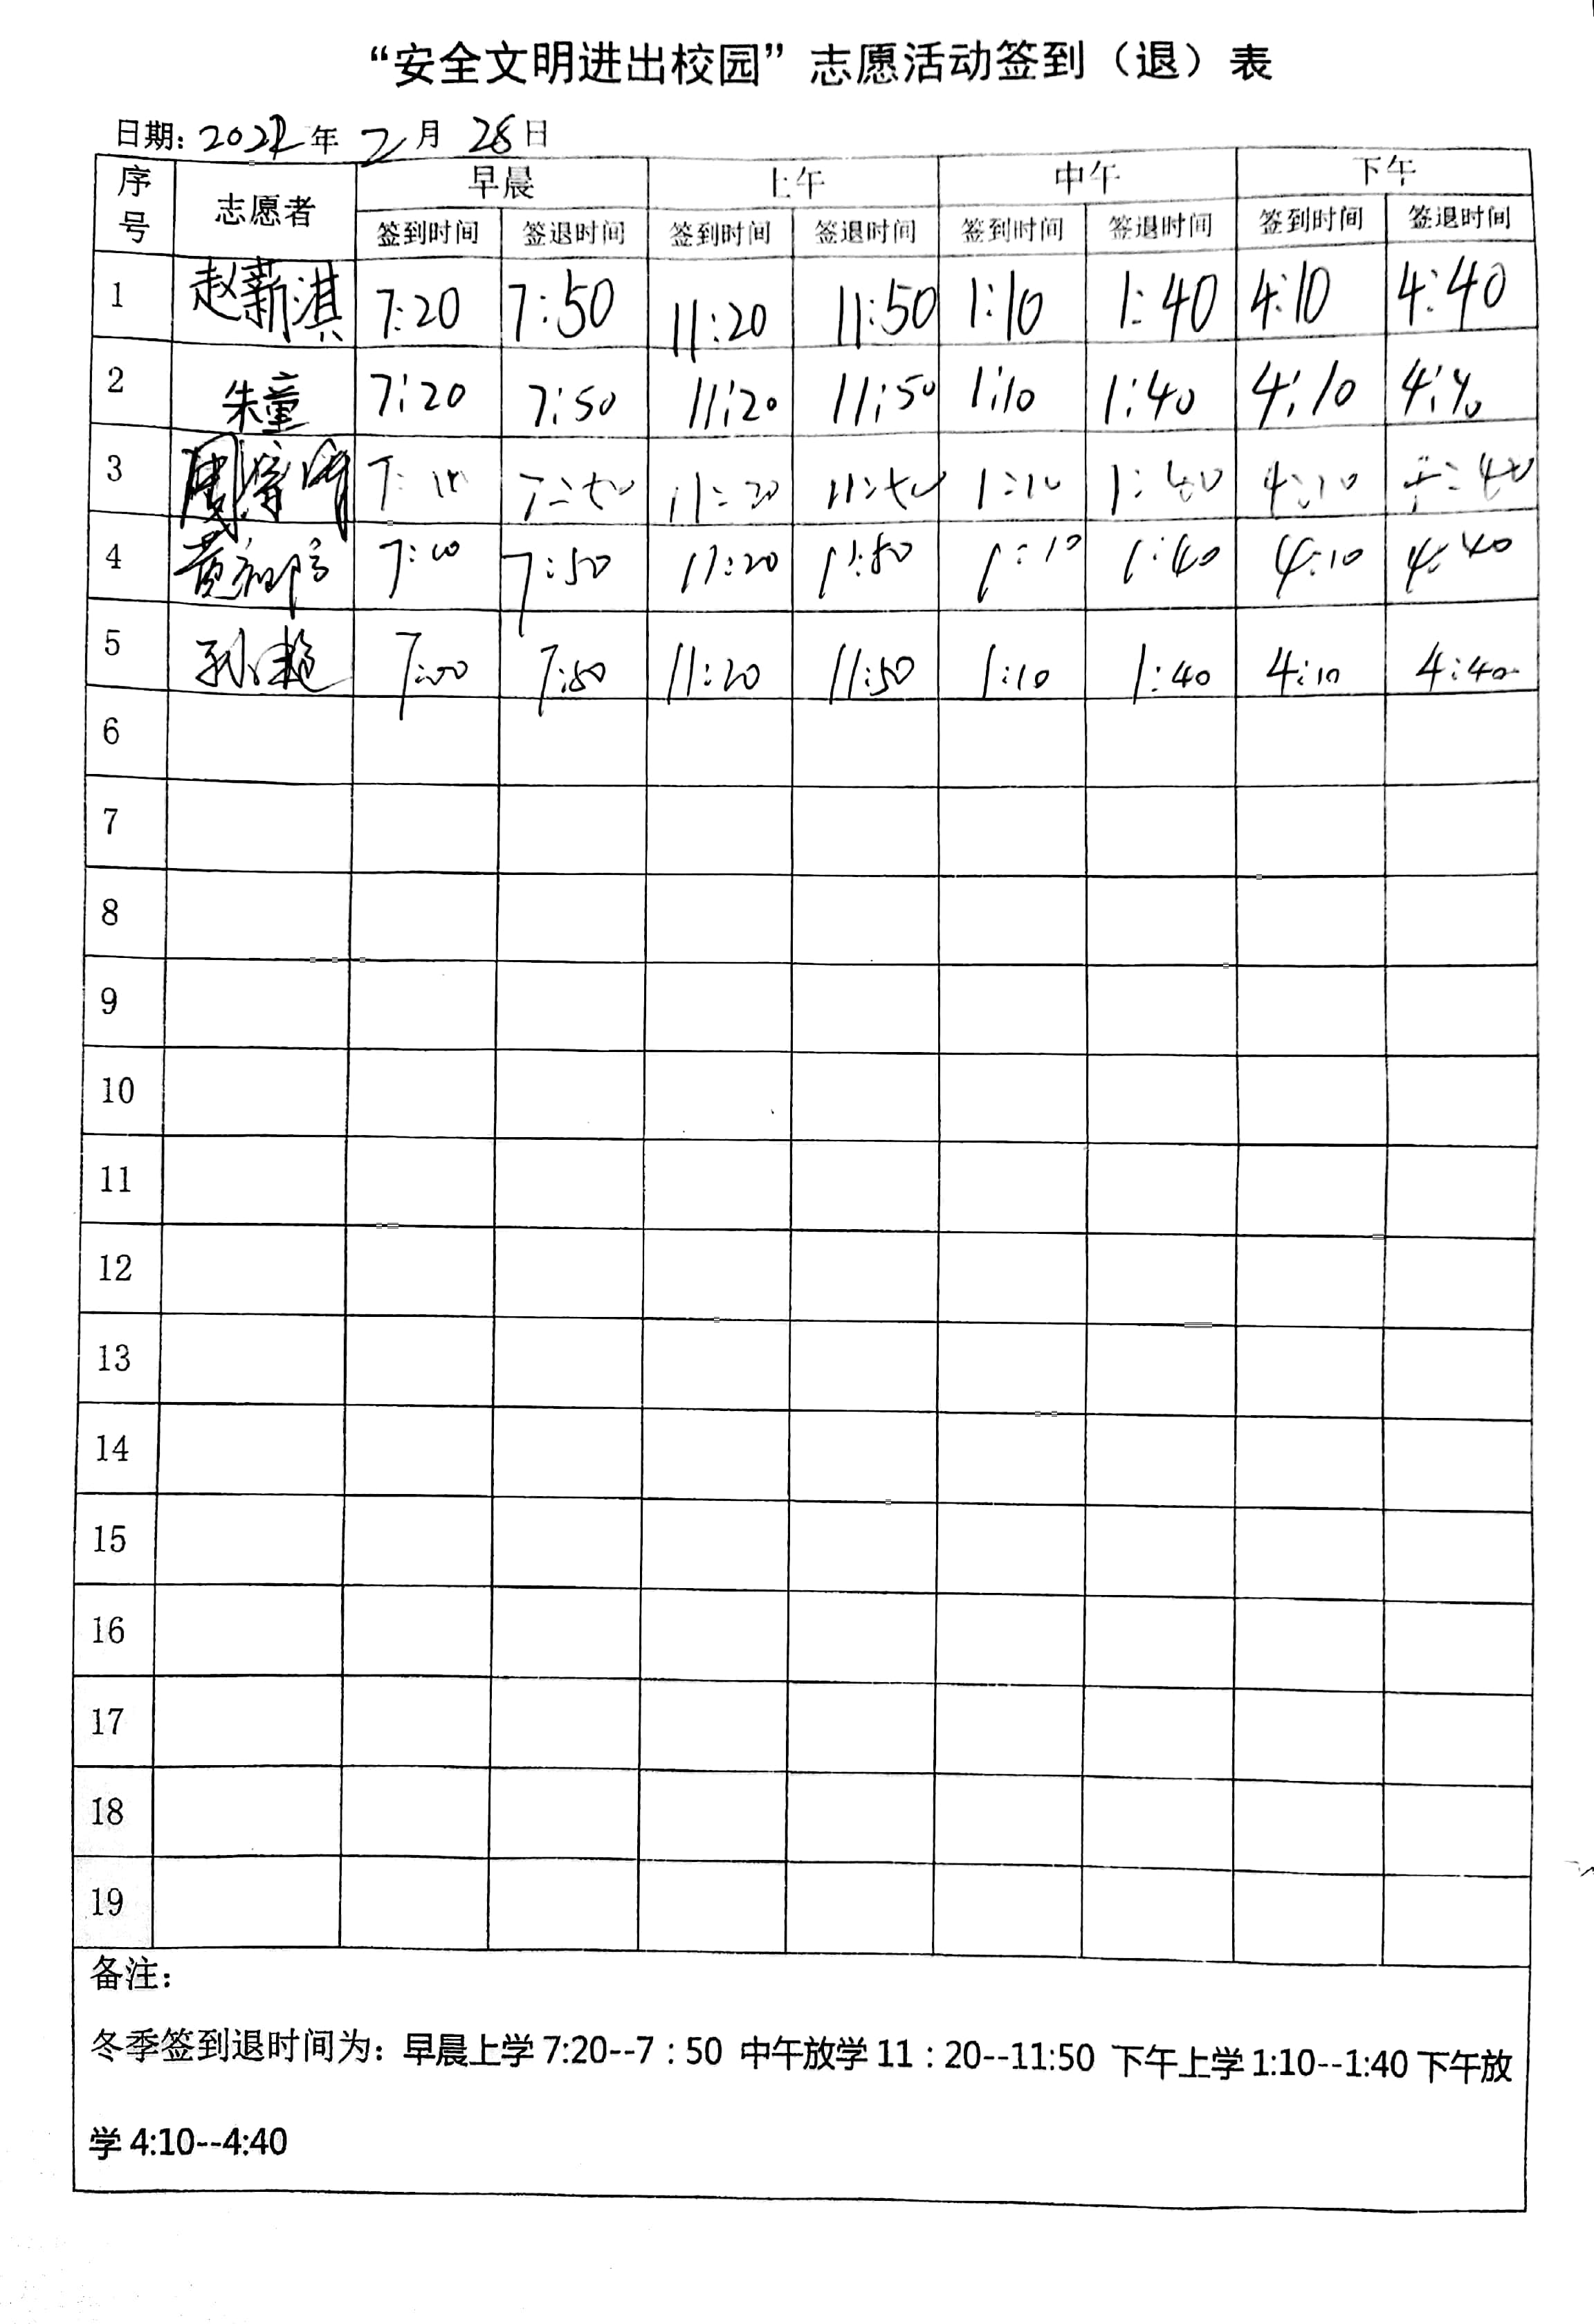 “安全文明进出校园”志愿活动签到（退）表
日期: 2022年 2月 28日
序号 志愿者 早晨 上午 中午 下午
签到时间 签退时间 签到时间 签退时间 签到时间 签退时间 签到时间 签退时间
1 赵薪淇 7:20 7:50 11:20 11:50 1:10 1:40 4:10 4:40
2 朱童 7:20 7:50 11:20 11:50 1:10 1:40 4:10 4:40
3 7:10 7:50 11:20 11:50 1:10 1:40 4:10 4:40
4 7:00 7:50 11:20 11:50 1:10 1:40 4:10 4:40
5 7:00 7:50 11:20 11:50 1:10 1:40 4:10 4:40
6
7
8
9
10
11
12
13
14
15
16
17
18
19
备注:
冬季签到退时间为: 早晨上学 7:20--7：50 中午放学 11：20--11:50 下午上学 1:10--1:40 下午放
学 4:10--4:40